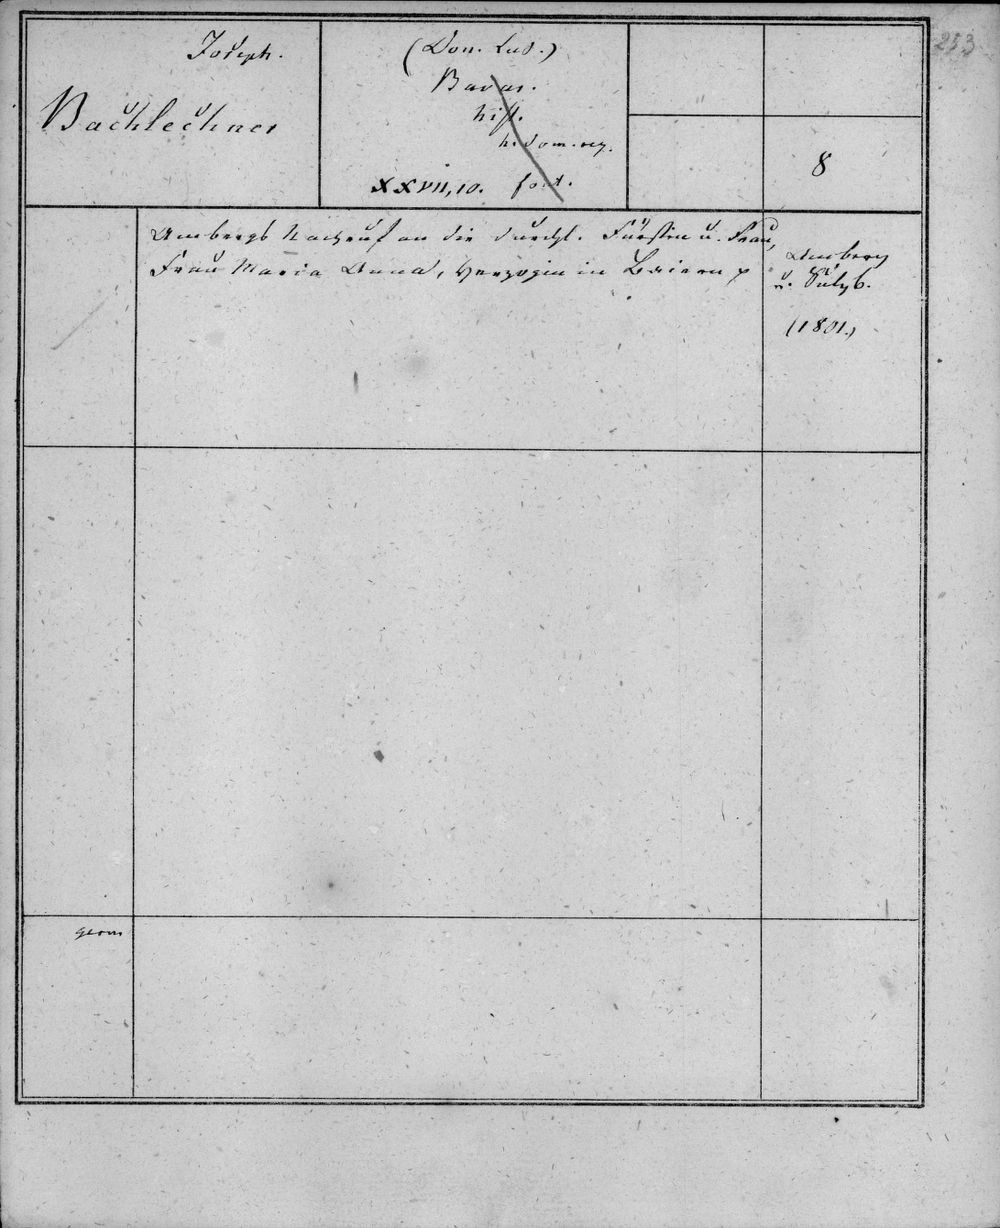 253
Joseph.
Bachlechner
(Don. Lud.)
Bavar.
hist.
h. dom. reg.
XXVII, 10. fort.
8
Ambergs Nachruf an die durchl. Fürstin u. Frau,
Frau Maria Anna, Herzogin in Baiern p
Amberg
u. Sulzb.
(1801.)
germ